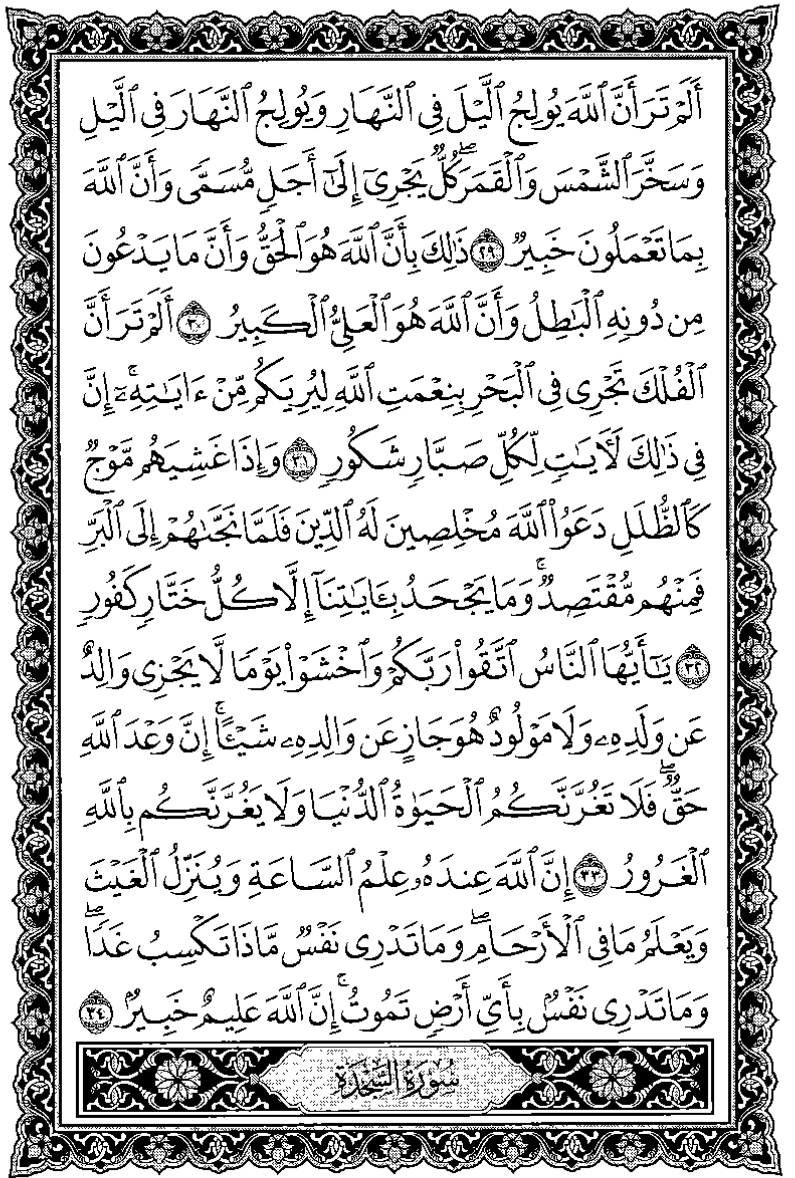 أَلَمْ تَرَ أَنَّ ٱللَّهَ يُولِجُ ٱلَّيْلَ فِى ٱلنَّهَارِ وَيُولِجُ ٱلنَّهَارَ فِى ٱلَّيْلِ
وَسَخَّرَ ٱلشَّمْسَ وَٱلْقَمَرَۖ كُلٌّ يَجْرِىٓ إِلَىٰٓ أَجَلٍ مُّسَمًّى وَأَنَّ ٱللَّهَ
بِمَا تَعْمَلُونَ خَبِيرٌ ٢٩ ذَٰلِكَ بِأَنَّ ٱللَّهَ هُوَ ٱلْحَقُّ وَأَنَّ مَا يَدْعُونَ
مِن دُونِهِ ٱلْبَـٰطِلُ وَأَنَّ ٱللَّهَ هُوَ ٱلْعَلِىُّ ٱلْكَبِيرُ ٣٠ أَلَمْ تَرَ أَنَّ
ٱلْفُلْكَ تَجْرِى فِى ٱلْبَحْرِ بِنِعْمَتِ ٱللَّهِ لِيُرِيَكُم مِّنْ ءَايَـٰتِهِۦٓۚ إِنَّ
فِى ذَٰلِكَ لَـَٔايَـٰتٍ لِّكُلِّ صَبَّارٍ شَكُورٍ ٣١ وَإِذَا غَشِيَهُم مَّوْجٌ
كَٱلظُّلَلِ دَعَوُا۟ ٱللَّهَ مُخْلِصِينَ لَهُ ٱلدِّينَ فَلَمَّا نَجَّىٰهُمْ إِلَى ٱلْبَرِّ
فَمِنْهُم مُّقْتَصِدٌۚ وَمَا يَجْحَدُ بِـَٔايَـٰتِنَآ إِلَّا كُلُّ خَتَّارٍ كَفُورٍ
٣٢ يَـٰٓأَيُّهَا ٱلنَّاسُ ٱتَّقُوا۟ رَبَّكُمْ وَٱخْشَوْا۟ يَوْمًا لَّا يَجْزِى وَالِدٌ
عَن وَلَدِهِۦ وَلَا مَوْلُودٌ هُوَ جَازٍ عَن وَالِدِهِۦ شَيْـًٔاۚ إِنَّ وَعْدَ ٱللَّهِ
حَقٌّۖ فَلَا تَغُرَّنَّكُمُ ٱلْحَيَوٰةُ ٱلدُّنْيَا وَلَا يَغُرَّنَّكُم بِٱللَّهِ
ٱلْغَرُورُ ٣٣ إِنَّ ٱللَّهَ عِندَهُۥ عِلْمُ ٱلسَّاعَةِ وَيُنَزِّلُ ٱلْغَيْثَ
وَيَعْلَمُ مَا فِى ٱلْأَرْحَامِۖ وَمَا تَدْرِى نَفْسٌ مَّاذَا تَكْسِبُ غَدًاۖ
وَمَا تَدْرِى نَفْسٌۢ بِأَىِّ أَرْضٍ تَمُوتُۚ إِنَّ ٱللَّهَ عَلِيمٌ خَبِيرٌۢ ٣٤
سُورَةُ السَّجْدَةِ